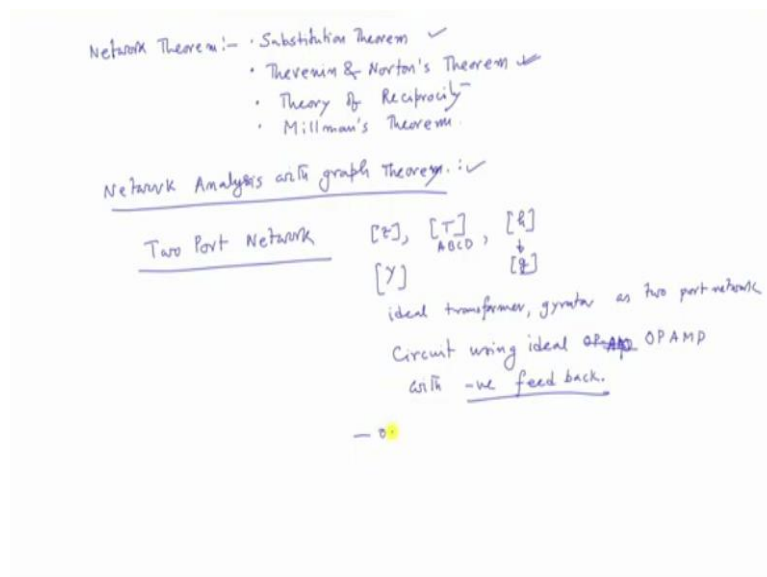 Network Theorem:- · Substitution Theorem ✓
· Thevenin & Norton's Theorem ✓
· Theory of Reciprocity
· Millman's Theorem.
Network Analysis with graph Theorem. : ✓
Two Port Network [z], [T], [h]
ABCD ↓
[Y] [g]
ideal transformer, gyrator as two port network
Circuit using ideal OPAMP
with -ve feed back.